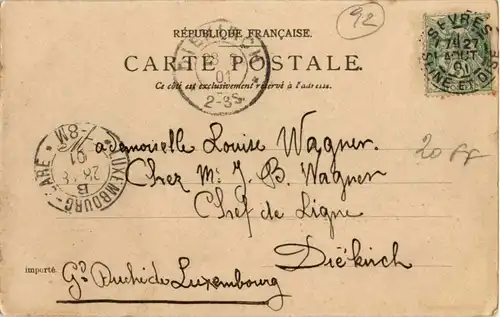 92
RÉPUBLIQUE FRANÇAISE.
CARTE POSTALE.
Ce côté est exclusivement réservé à l'adresse.
SÈVRES
27
AOUT
01
SEINE-ET-OISE
DIEKIRCH
01
2-3S.
LUXEMBOURG-GARE
01
B
20 ff
Mademoiselle Louise Wagner.
Chez Mr J. B. Wagner
Chef de Ligne
Diékirch
importé.
Gd Duché de Luxembourg